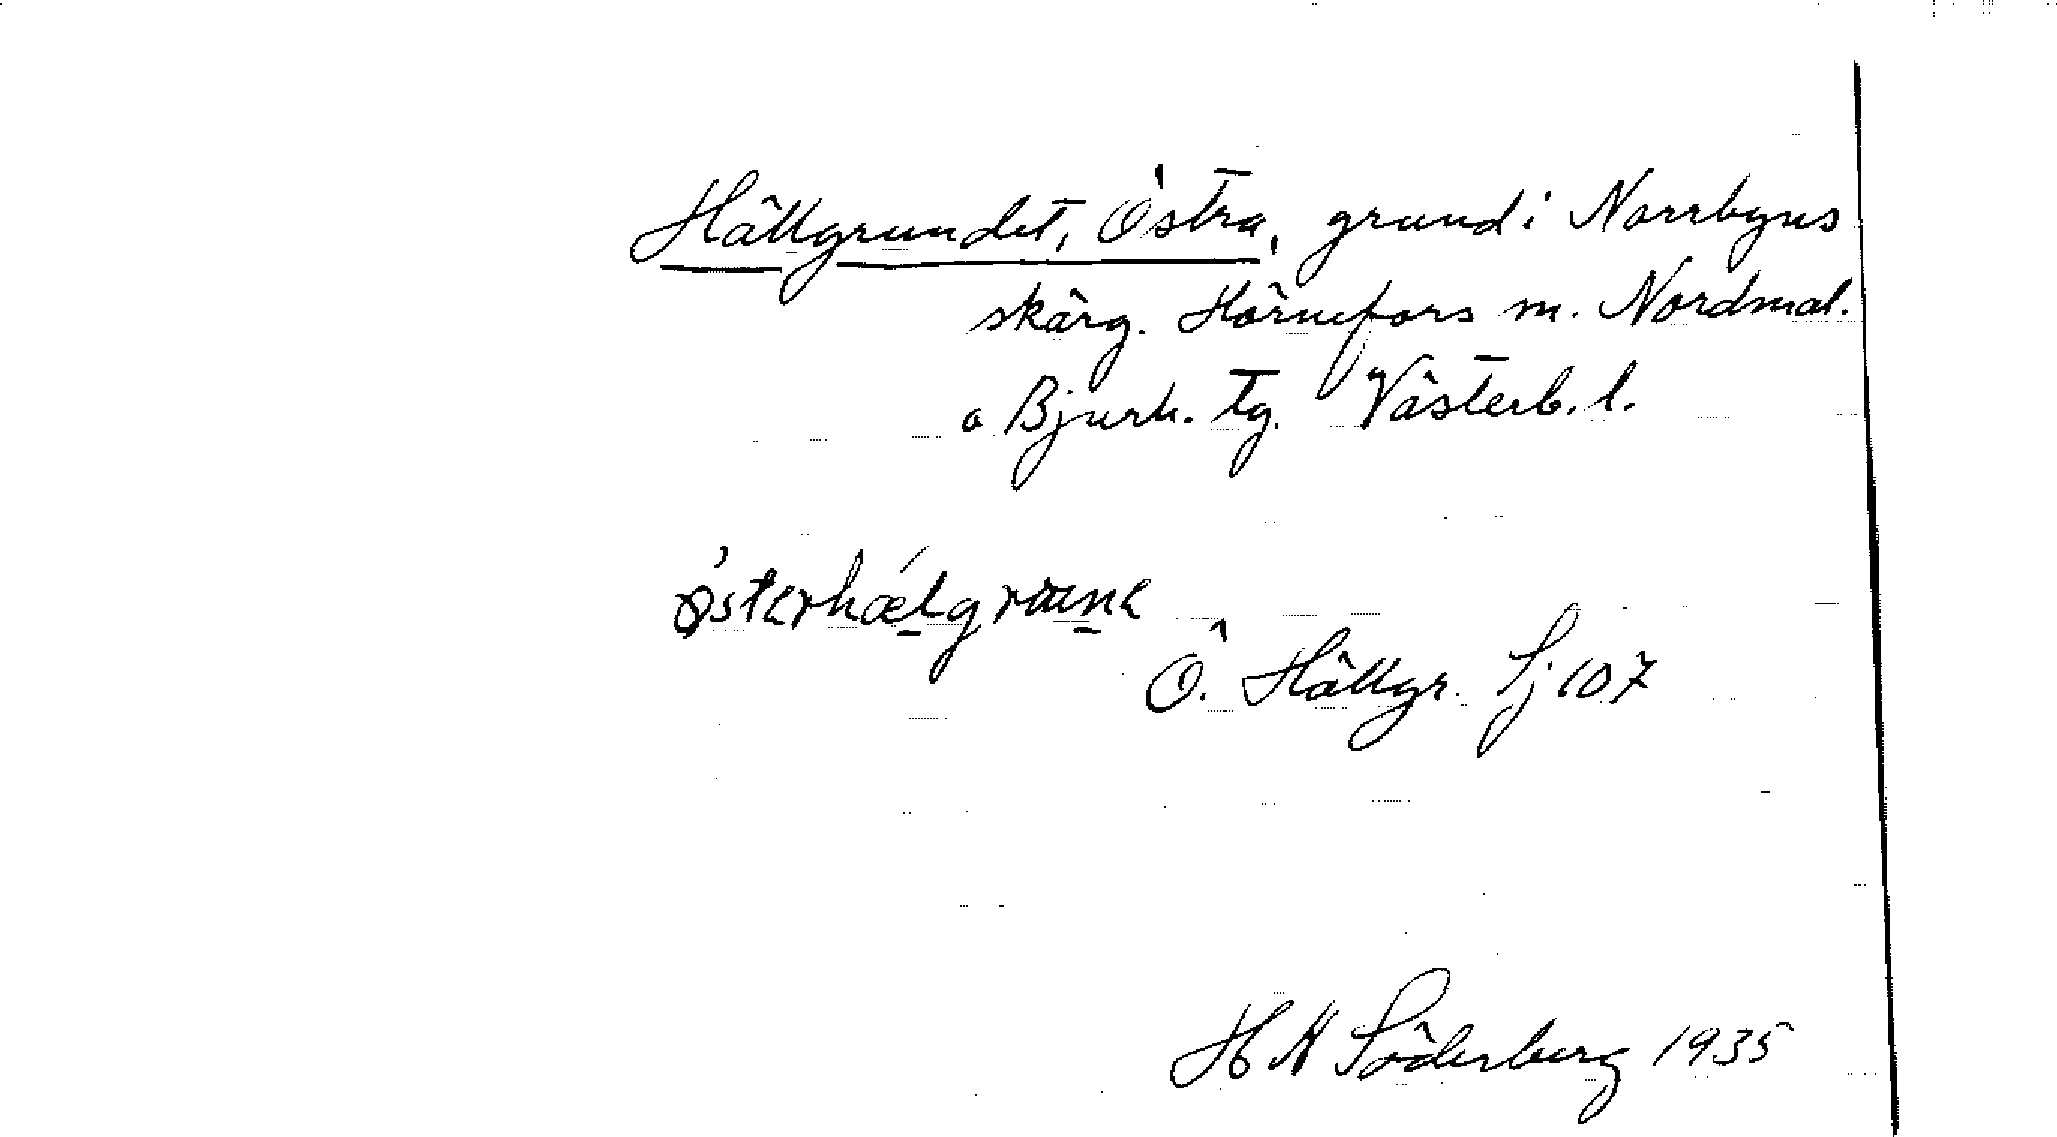 Hällgrundet, Östra, grund i Norrbyns
skärg. Hörnefors m. Nordmal.
o Bjurh. tg. Västerb. l.
Ö. Hällgr. Sj 107
H N Söderberg 1935